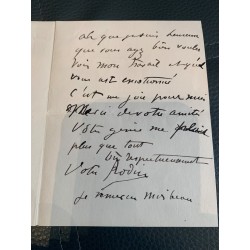 ah que je suis heureux
que vous ayez bien voulu
voir mon travail
vous est
C'est une joie pour moi
Merci de votre amitié
Votre génie me
plus que tout
bien respectueusement
Votre Rodin
Je remercie Mirbeau